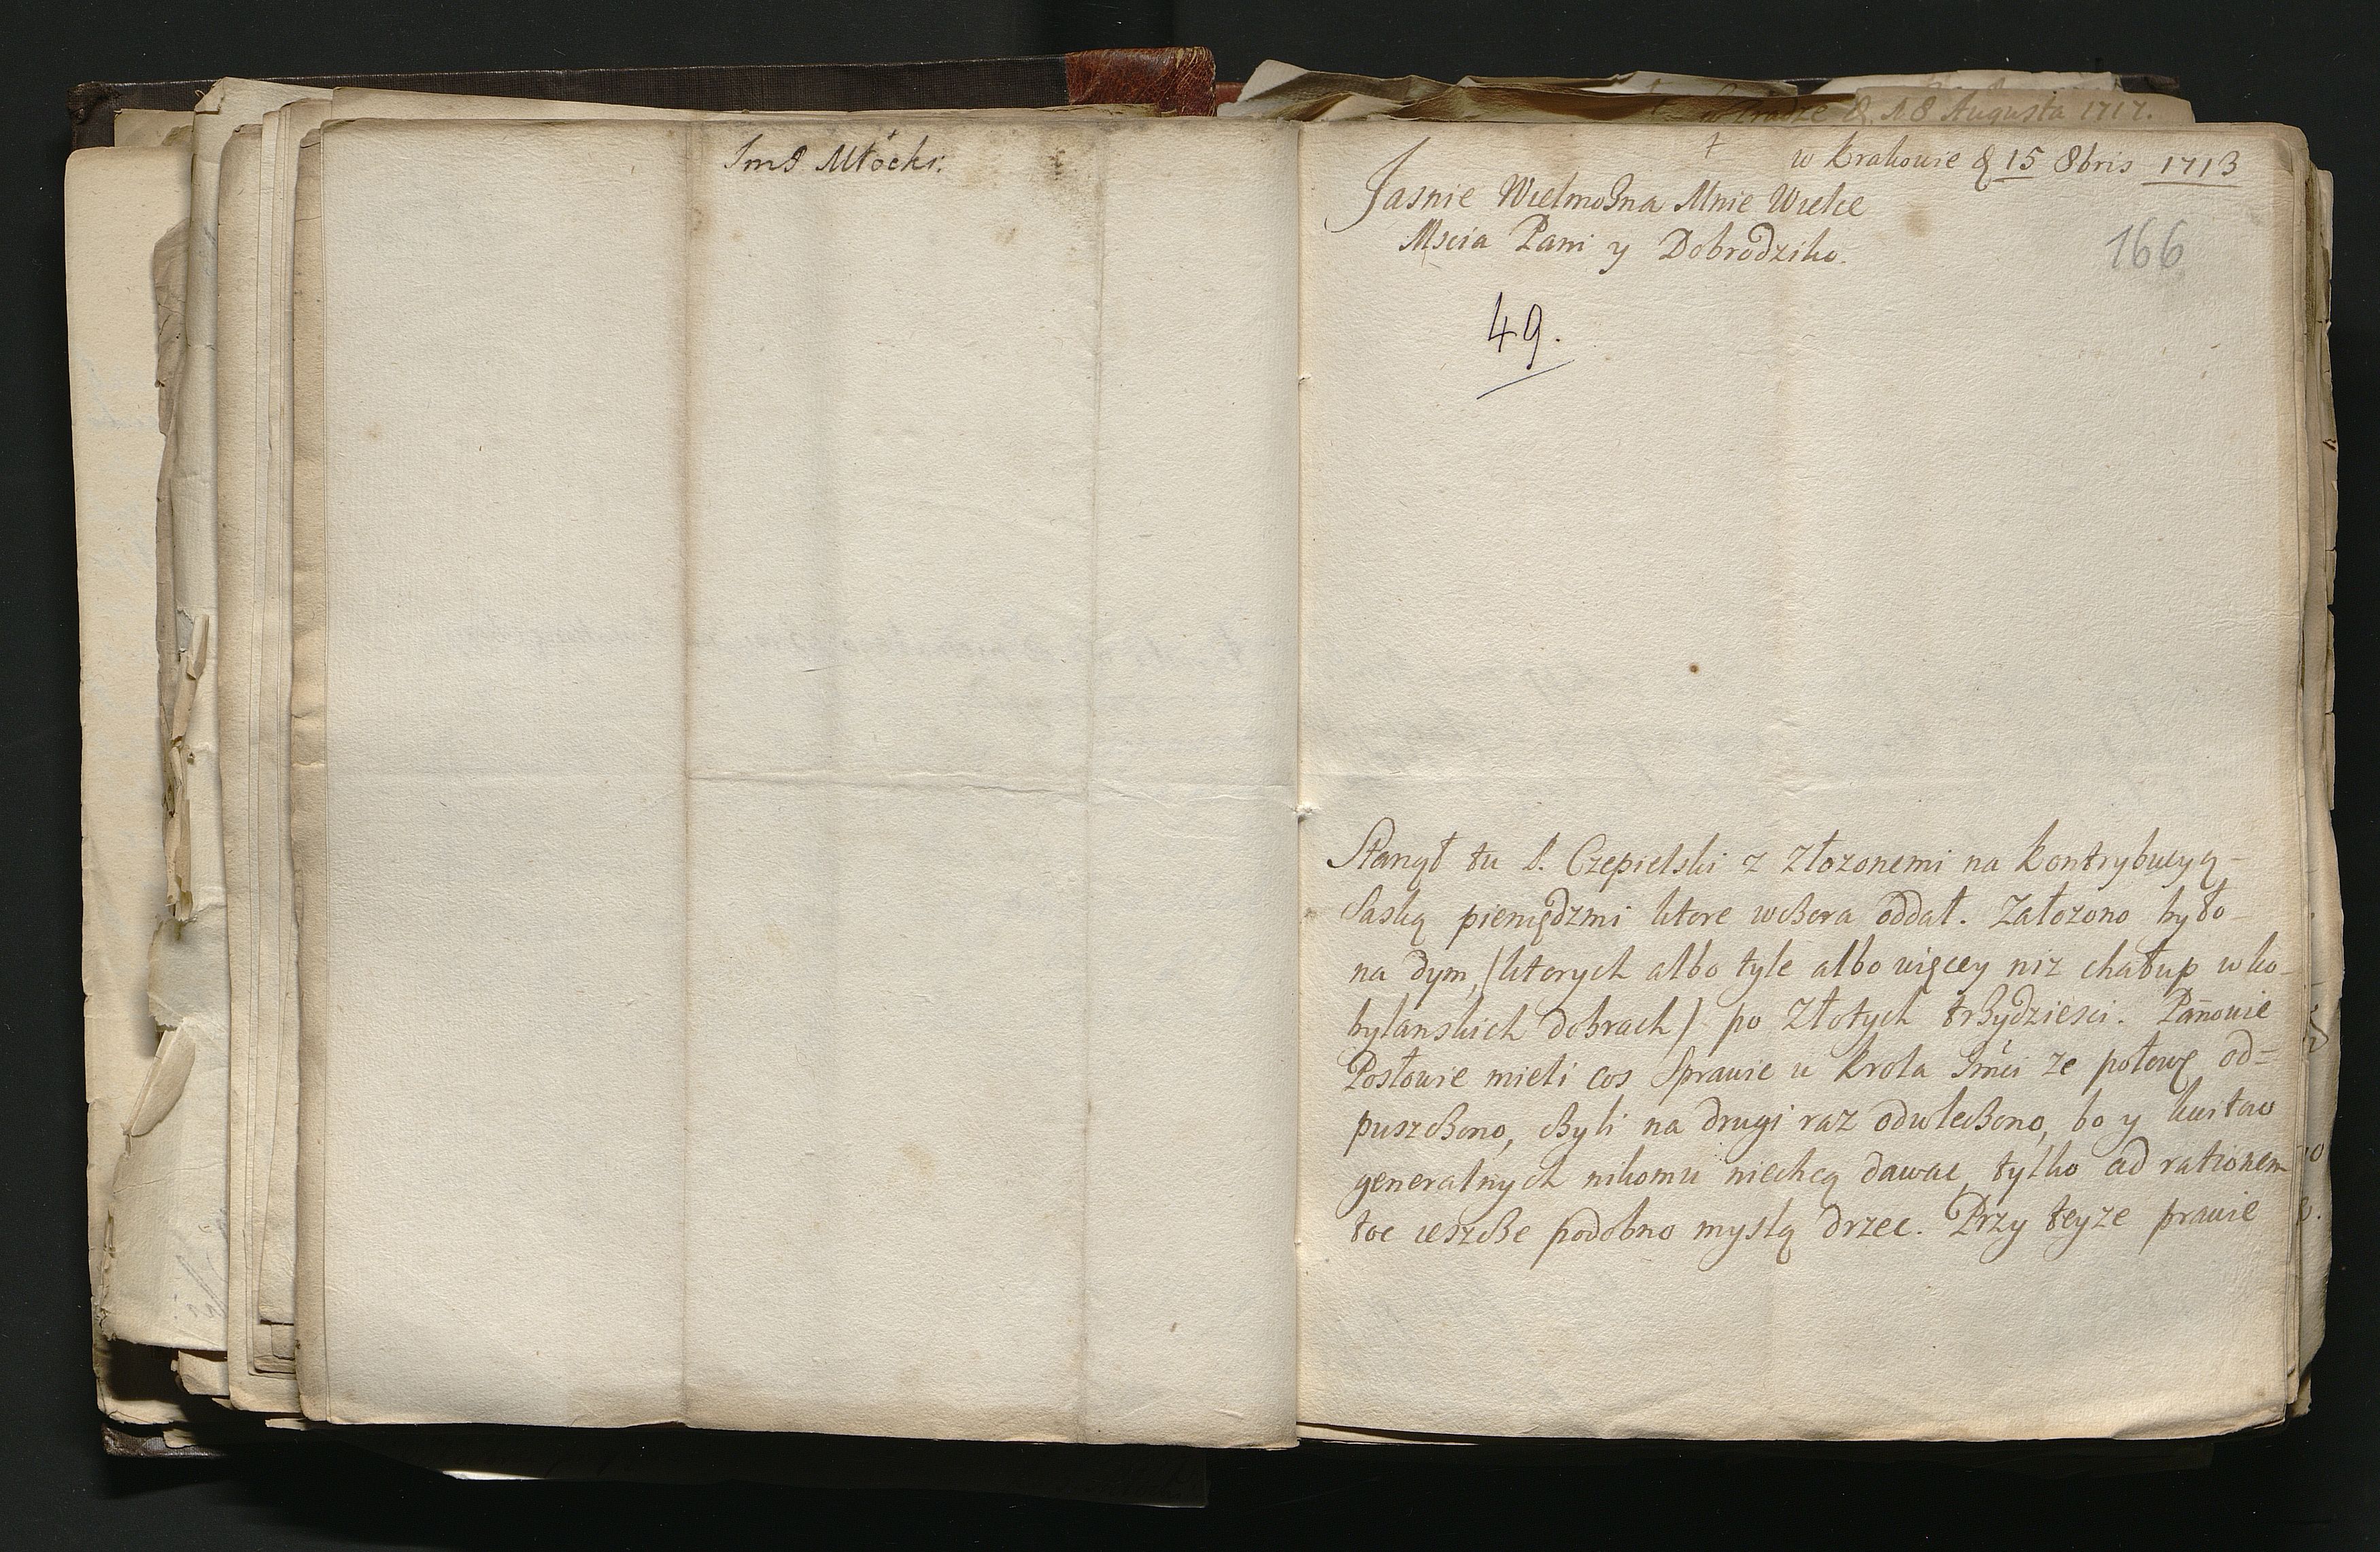 Jmć Młocki.
w Krakowie d 15 8bris 1713
Jasnie Wielmożna Mnie Wielce
Mscia Pani y Dobrodziko.
166
49.
Stanął tu P. Czepielski z złozonemi na kontrybucyą
Saską pieniędzmi ktore wczora oddał. Załozono było
na dym, (ktorych albo tyle albo więcey niz chałup w ko-
bylanskich dobrach) po Złotych trzydziesci. Panowie
Posłowie mieli cos Sprawic u Krola Jmći ze połowę od=
puszczono, czyli na drugi raz odwleczono, bo y kwitow
generalnych nikomu niechcą dawac, tylko ad rationem
toc ieszcze podobno myslą drzec. Przy teyze prawie
18 Augusta 1717.